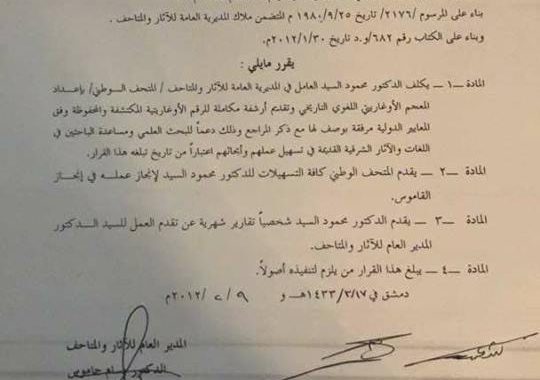 بناء على المرسوم /٢١٧٦/ تاريخ ١٩٨٠/٩/٢٥ م المتضمن ملاك المديرية العامة للآثار والمتاحف.
وبناء على الكتاب رقم ٦٨٢/و.د تاريخ ٢٠١٢/١/٣٠م.
يقرر مايلي :
المادة ــ١ــ يكلف الدكتور محمود السيد العامل في المديرية العامة للآثار والمتاحف / المتحف الوطني/ بإعداد
المعجم الأوغاريتي اللغوي التاريخي وتقديم أرشفة متكاملة للرقم الأوغاريتية المكتشفة والمحفوظة وفق
المعايير الدولية مرفقة بوصف لها مع ذكر المراجع وذلك دعماً للبحث العلمي ومساعدة الباحثين في
اللغات والآثار الشرقية القديمة في تسهيل عملهم وأبحاثهم اعتباراً من تاريخ تبلغه هذا القرار.
المادة ــ٢ــ يقدم المتحف الوطني كافة التسهيلات للدكتور محمود السيد لإنجاز عمله في إنجاز
القاموس.
المادة ــ٣ــ يقدم الدكتور محمود السيد شخصياً تقارير شهرية عن تقدم العمل للسيد الدكتور
المدير العام للآثار والمتاحف.
المادة ــ٤ــ يبلغ هذا القرار من يلزم لتنفيذه أصولاً.
دمشق في ١٤٣٣/٣/١٧هـ و ٩ /٢ /٢٠١٢م
المدير العام للآثار والمتاحف
الدكتور